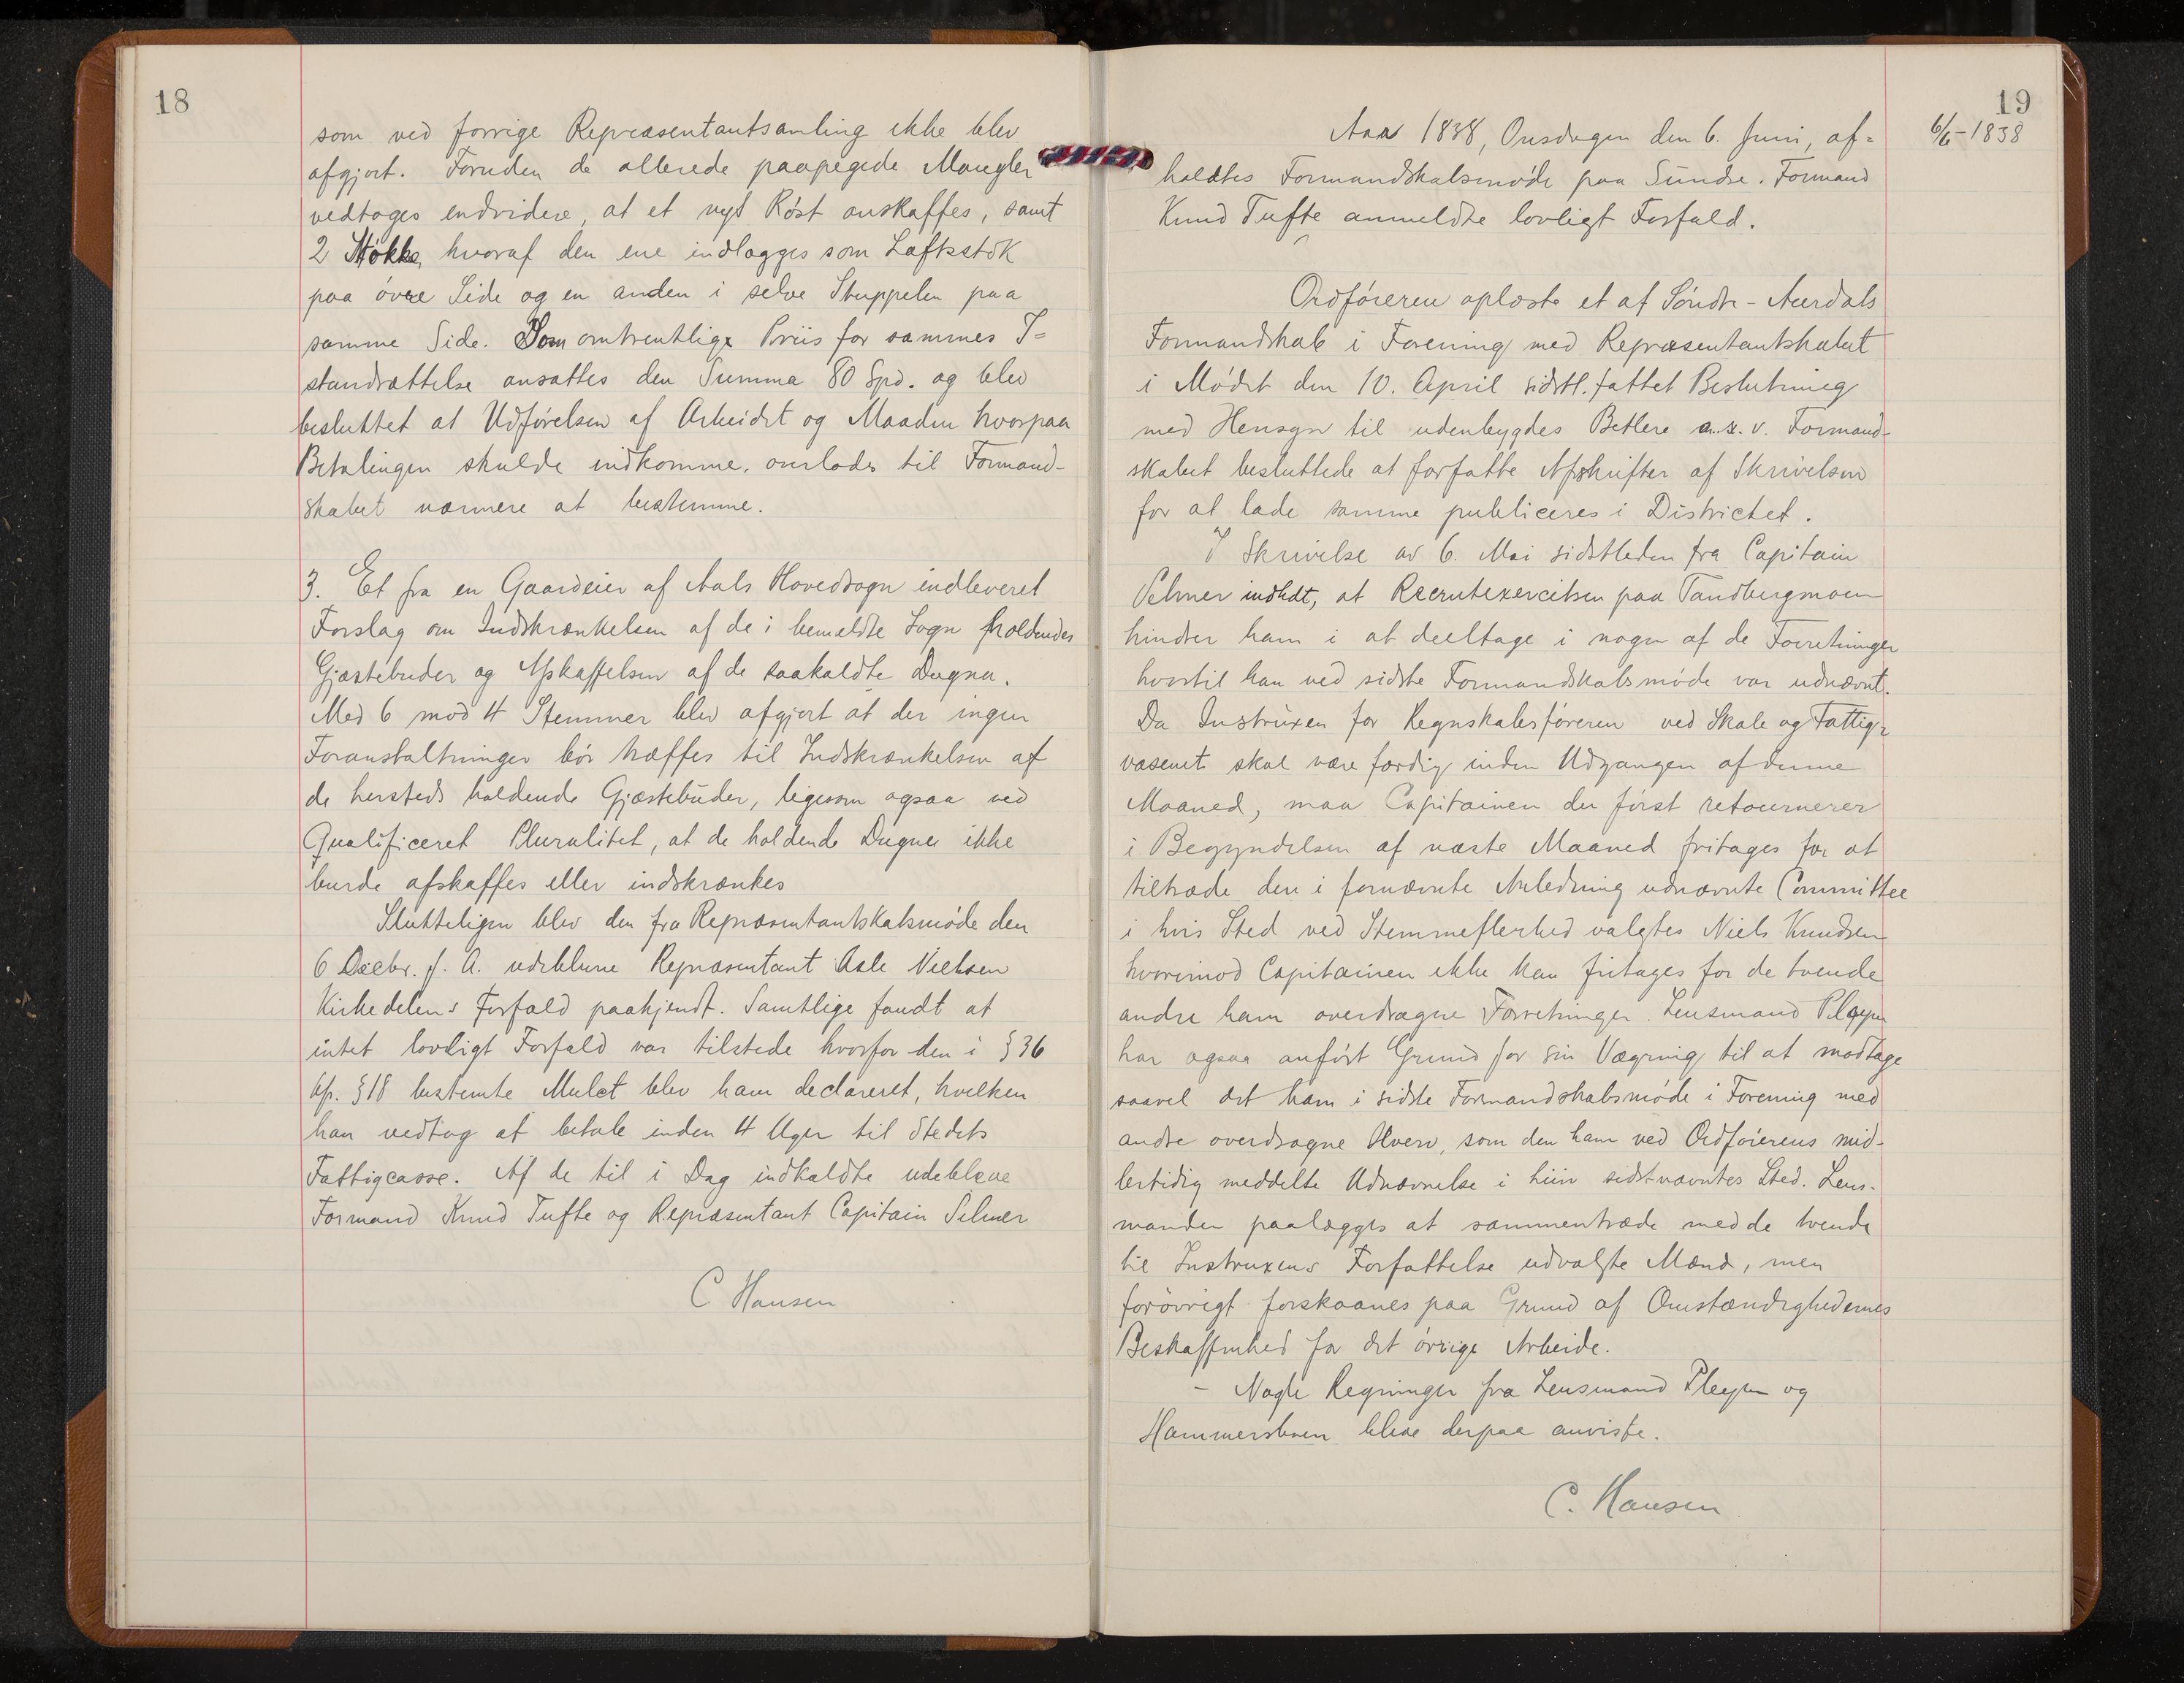 18
som ved forrige Repræsentantsamling ikke blev
afgjort. Foruden de allerede paapegede Mangler
vedtoges endvidere, at et nyt Röst anskaffes, samt
2 Stökke, hvoraf den ene indlægges som Laftsstok
paa övre Side og en anden i selve Stuppelen paa
samme Side. Som omtrentlige Priis for sammes I=
standsættelse ansattes den Summa 80 Spd. og blev
besluttet at Udförelsen af Arbeidet og Maaden hvorpaa
Betalingen skulde indkomme, overlodes til Formand-
skabet nærmere at bestemme.
3. Et fra en Gaardeier af Aals Hovedsogn indleveret
Forslag om Indskrænkelsen af de i bemeldte Sogn holdendes
Gjæstebuder og Afskaffelsen af de saakaldte Dugna.
Med 6 mod 4 Stemmer blev afgjort at der ingen
Foranstaltninger bör træffes til Indskrænkelsen af
de hersteds holdende Gjæstebuder, ligesom ogsaa ved
Qualificeret Pluralitet, at de holdende Dugner ikke
burde afskaffes eller indskrænkes
Slutteligen blev den fra Repræsentantskabsmöde den
6 Decbr. f. A. udeblevne Repræsentant Asle Nielsen
Kirkedelens Forfald paakjendt. Samtlige fandt at
intet lovligt Forfald var tilstede hvorfor den i § 36
kfr. § 18 bestemte Mulct blev ham declareret, hvilken
han vedtog at betale inden 4 Uger til Stedets
Fattigcasse. Af de til i Dag indkaldte udebleve
Formand Knud Tufte og Repræsentant Capitain Selmer
C. Hansen
19
6/6-1838
Aar 1838, Onsdagen den 6. Juni, af=
holdtes Formandskabsmöde paa Sundre. Formand
Knud Tufte anmeldte lovligt Forfald.
Ordföreren oplæste et af Söndre-Aurdals
Formandskab i Forening med Repræsentantskabet
i Mödet den 10. April sidstl. fattet Beslutning
med Hensyn til udenbygdes Betlere a. s. v. Formand-
skabet besluttede at forfatte Afskrifter af Skrivelsen
for at lade samme publiceres i Districtet.
I Skrivelse av 6. Mai sidstleden fra Capitain
Selmer indhdt, at Recrutexercitsen paa Tandbergmoen
hindrer ham i at deeltage i nogen af de Forretninger
hvortil han ved sidste Formandskabsmöde var udnævnt.
Da Instruxen for Regnskabsföreren ved Skole og Fattig=
væsenet skal være færdig inden Udgangen af denne
Maaned, maa Capitainen der först retournerer
i Begyndelsen af næste Maaned fritages for at
tiltræde den i fornævnte Anledning udnævnte Committee
i hvis Sted ved Stemmeflerhed valgtes Niels Knudsen
hvorimod Capitainen ikke kan fritages for de tvende
andre ham overdragne Forretninger. Lensmand Pleym
har ogsaa anfört Grund for sin Vægring til at modtage
saavel det ham i sidste Formandskabsmöde i Forening med
andre overdragne Hverv, som den ham ved Ordförerens mid-
lertidig meddelte Udnævnelse i hiin sidstnævntes Sted. Lens-
manden paalægges at sammentræde med de tvende
til Instruxens Forfattelse udvalgte Mænd, men
forövrigt forskaanes paa Grund af Omstændighedernes
Beskaffenhed for det övrige Arbeide.
- Nogle Regninger fra Lensmand Pleym og
Hammersbøen bleve derpaa anviste.
C. Hansen